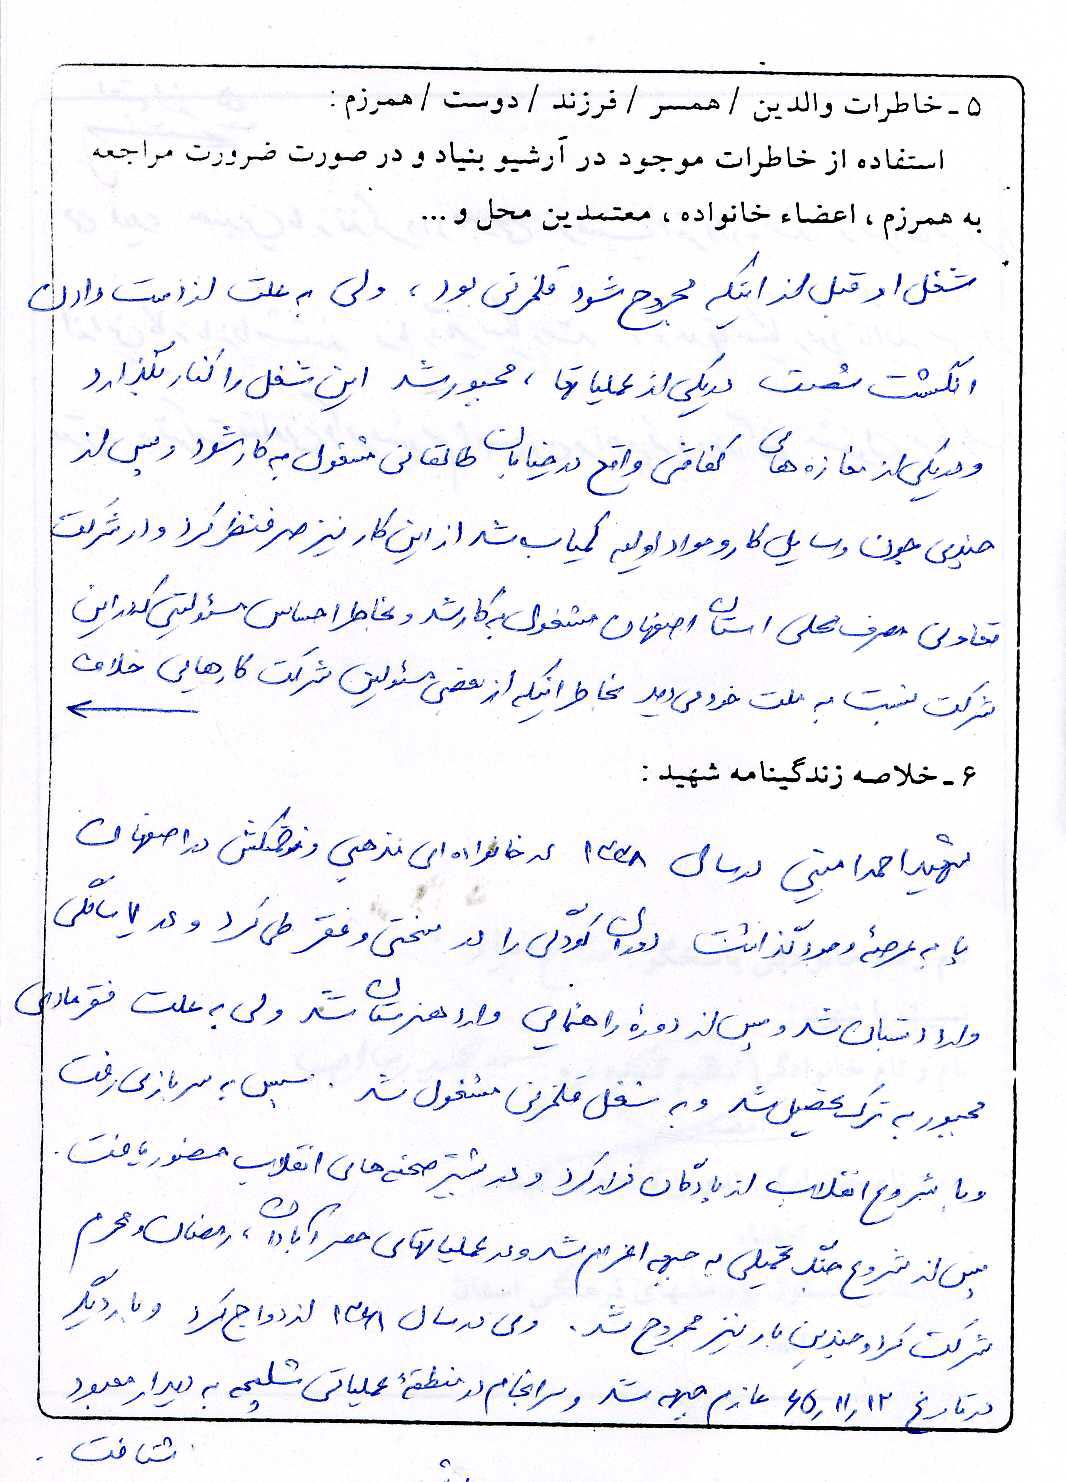 ۵ ـ خاطرات والدین / همسر / فرزند / دوست / همرزم :
استفاده از خاطرات موجود در آرشیو بنیاد و در صورت ضرورت مراجعه
به همرزم ، اعضاء خانواده ، معتمدین محل و ...
شغل او قبل از اینکه مجروح شود قلمزنی بود ، ولی به علت از دست دادن
انگشت شصت در یکی از عملیاتها ، مجبور شد این شغل را کنار بگذارد
و در یکی از مغازه های کفاشی واقع در خیابان طالقانی مشغول به کار شود و پس از
چندی چون وسایل کار و مواد اولیه کمیاب شد از این کار نیز صرفنظر کرد و در شرکت
تعاونی مصرف محلی استان اصفهان مشغول به کار شد و بخاطر احساس مسئولیتی که در این
شرکت نسبت به ملت خود می دید بخاطر اینکه از بعضی مسئولین شرکت کارهایی خلاف
۶ ـ خلاصه زندگینامه شهید :
شهید احمد امینی در سال ۱۳۳۸ در خانواده ای مذهبی و زحمتکش در اصفهان
پا به عرصهٔ وجود گذاشت دوران کودکی را در سختی و فقر طی کرد و در ۷ سالگی
وارد دبستان شد و پس از دورهٔ راهنمایی وارد هنرستان شد ولی به علت فقر مادی
مجبور به ترک تحصیل شد و به شغل قلمزنی مشغول شد . سپس به سربازی رفت
و با شروع انقلاب از پادگان فرار کرد و در بیشتر صحنه های انقلاب حضور یافت .
پس از شروع جنگ تحمیلی به جبهه اعزام شد و در عملیاتهای حصر آبادان ، رمضان و محرم
شرکت کرد و چندین بار نیز مجروح شد . وی در سال ۱۳۶۱ ازدواج کرد و بار دیگر
در تاریخ ۶۵,۱۱,۱۲ عازم جبهه شد و سرانجام در منطقهٔ عملیاتی شلمچه به دیدار معبود
شتافت .